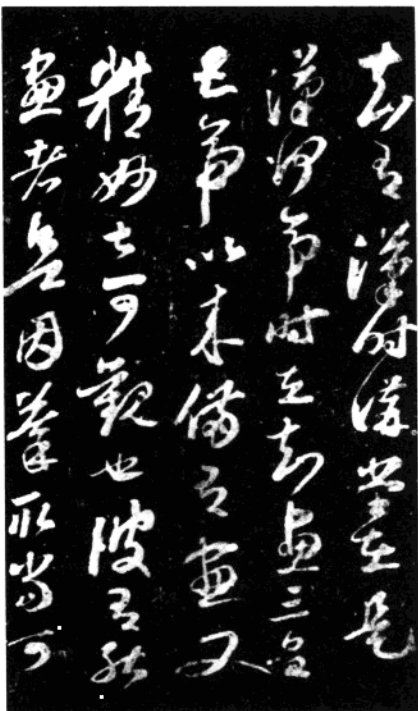 知有漢時講堂在是
漢何帝時立知畫三皇
五帝以來備有畫又
精妙甚可觀也彼有能
畫者不因摹取當可